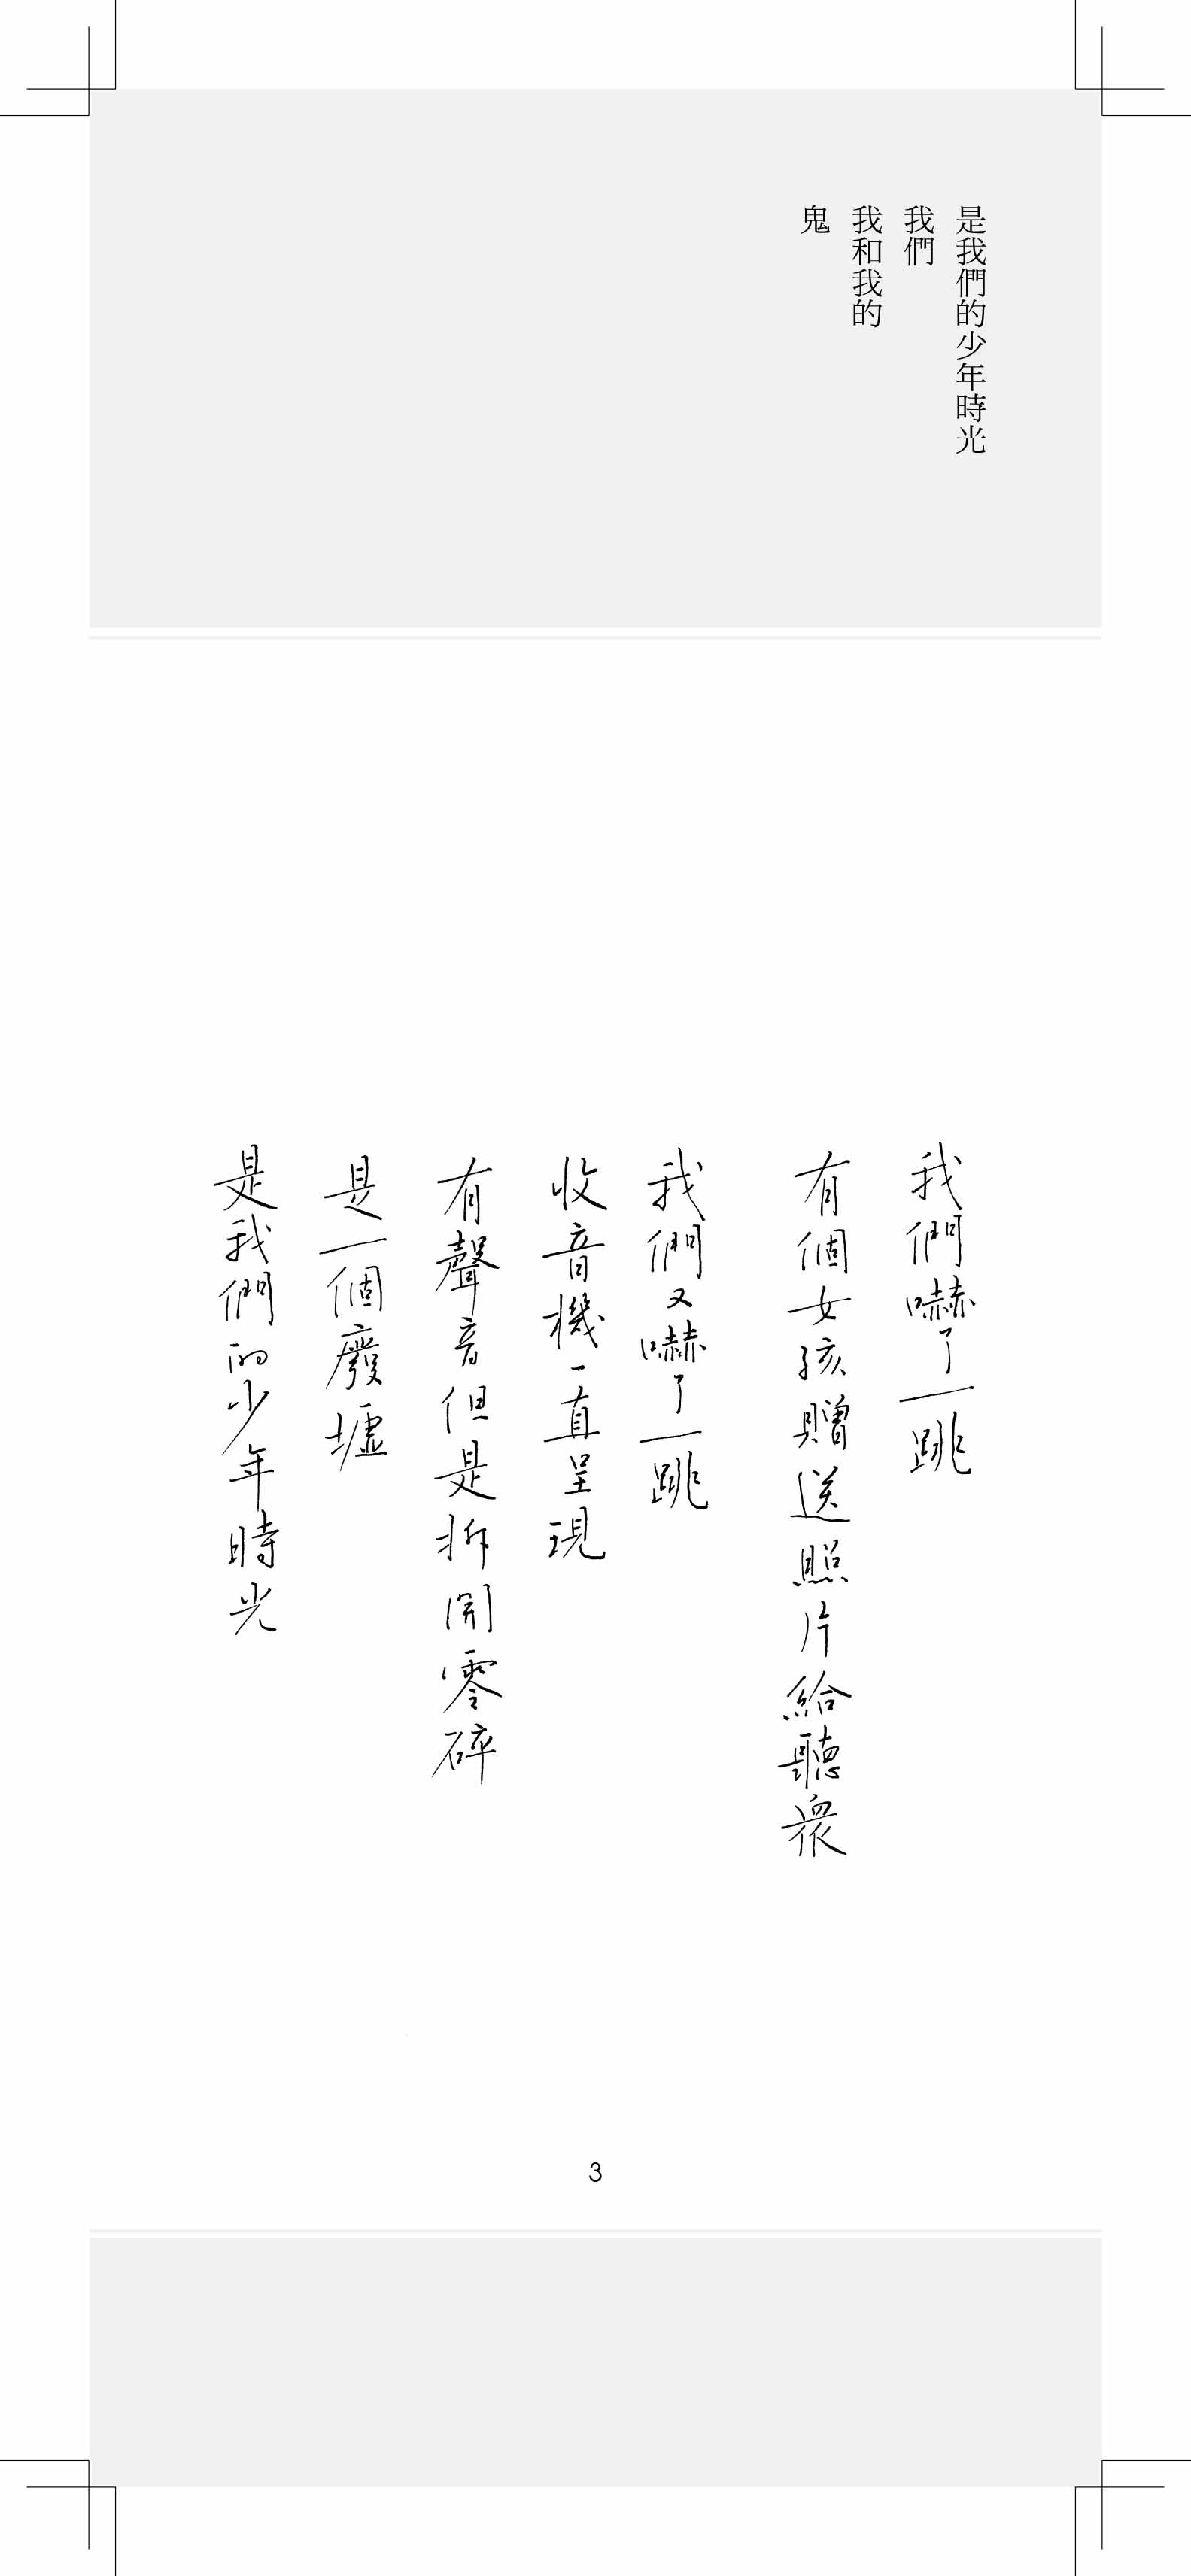 是我們的少年時光
我們
我和我的
鬼
我們嚇了一跳
有個女孩贈送照片給聽眾
我們又嚇了一跳
收音機一直呈現
有聲音但是拆開零碎
是一個廢墟
是我們的少年時光
3